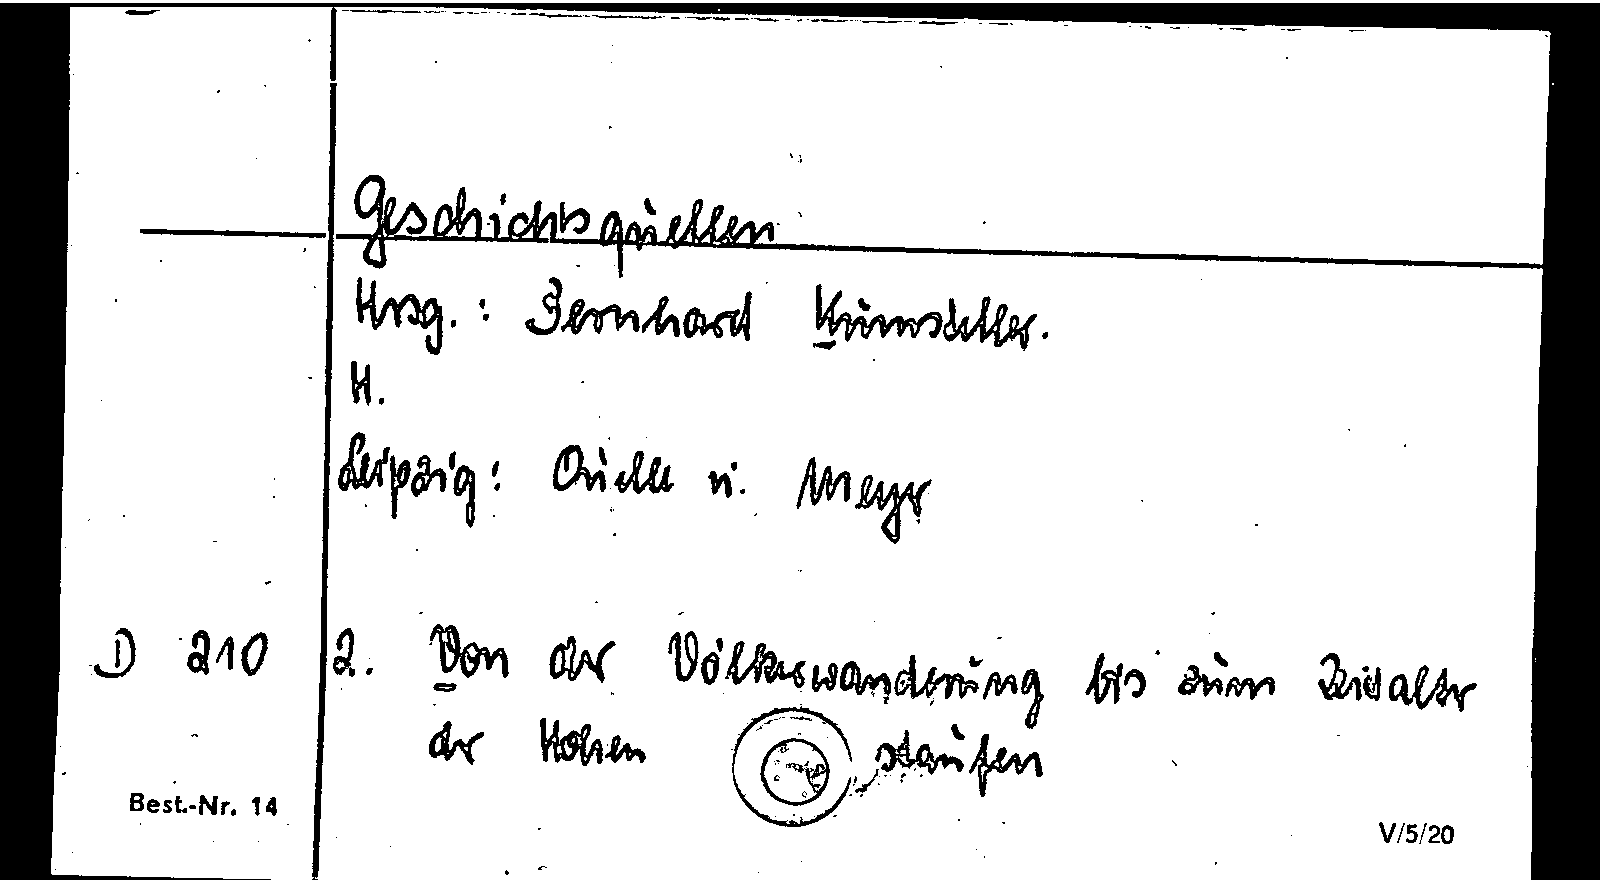 Geschichtsquellen
Hrsg.: Bernhard Kumsteller.
H.
Leipzig: Quelle u. Meyer
D 210 2. Von der Völkerwanderung bis zum Zeitalter
der Hohen staufen
Best.-Nr. 14
V/5/20